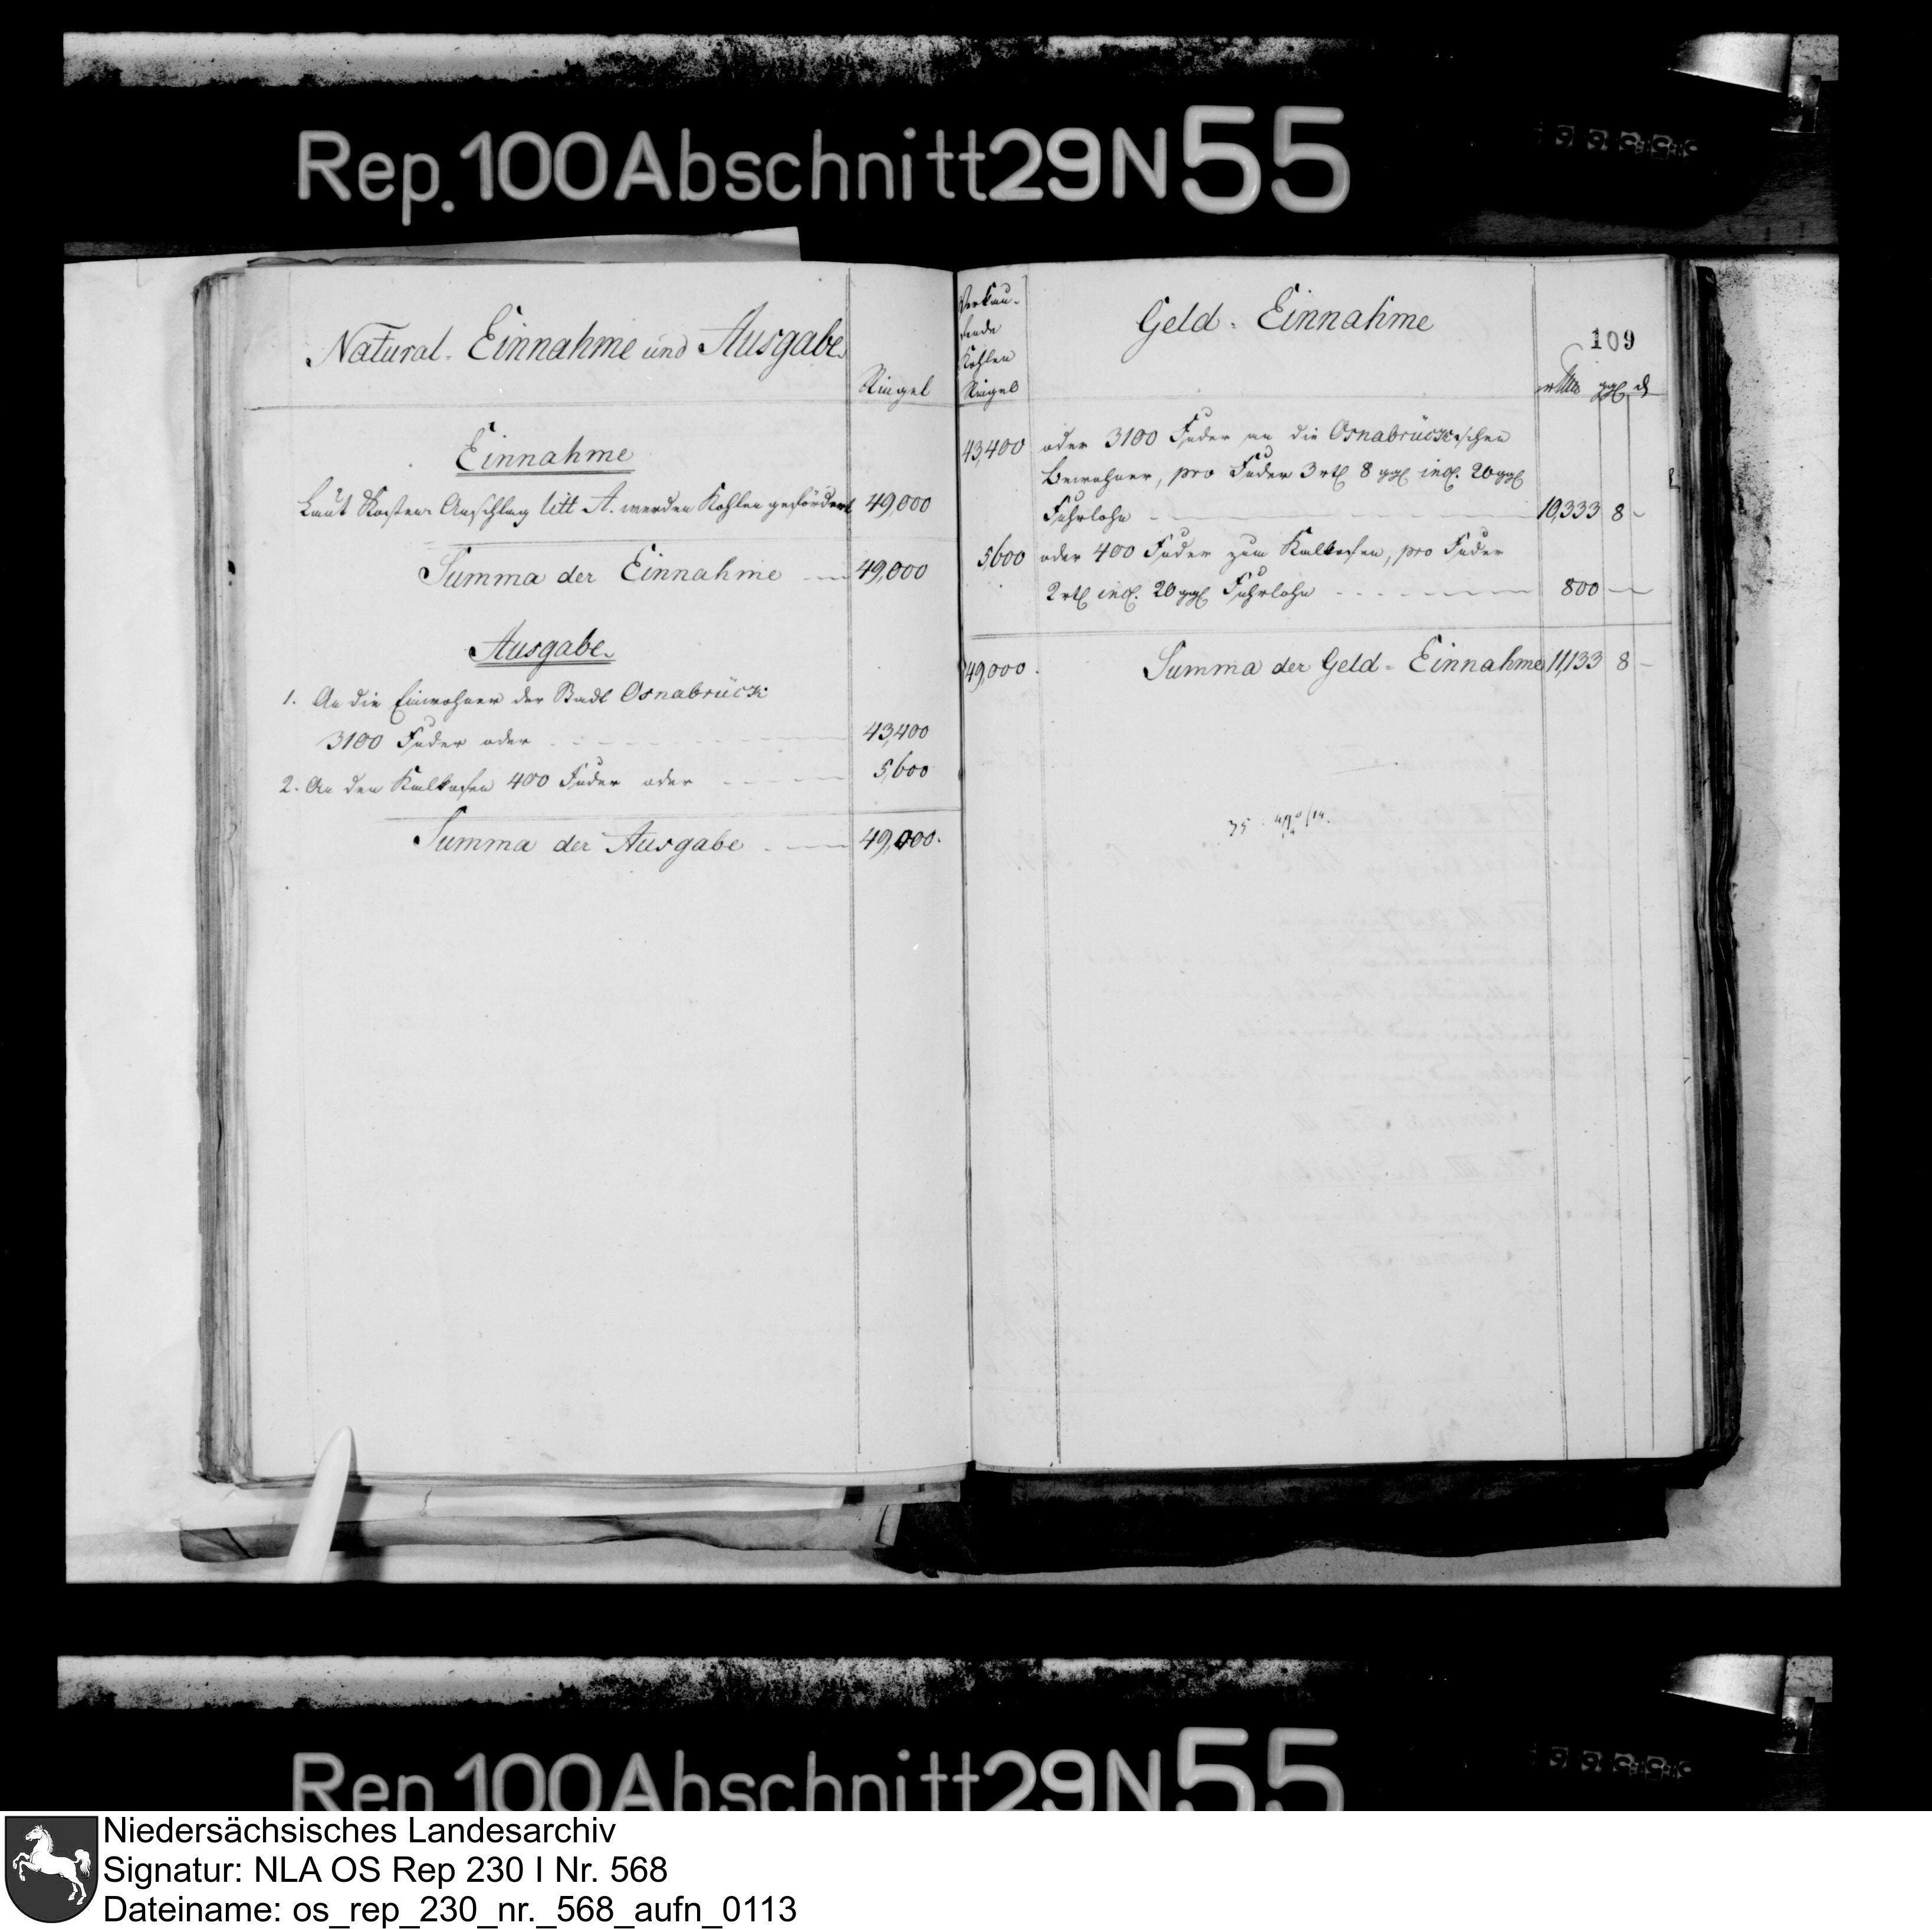 Rep. 100 Abschnitt 29 N 55
Natural- Einnahme und Ausgabe
Ringel
Einnahme
Laut Kosten Anschlag litt A. werden Kohlen gefördert 49,000
Summa der Einnahme 49,000
Ausgabe
1. An die Einwohner der Stadt Osnabrück
3100 Fuder oder 43,400
2. An den Kalkofen 400 Fuder oder 5,600
Summa der Ausgabe 49,000.
Kohlen
Ringel
Geld- Einnahme
109
rthlr ggl d
43,400 oder 3100 Fuder an die Osnabrückschen
Bewohner, pro Fuder 3 rtl 8 ggl incl. 20 ggl
Fuhrlohn 10,333 8 -
5,600 oder 400 Fuder zum Kalkofen, pro Fuder
2 rtl incl. 20 ggl Fuhrlohn 800 -
49,000. Summa der Geld- Einnahme 11,133 8 -
Rep. 100 Abschnitt 29 N 55
Niedersächsisches Landesarchiv
Signatur: NLA OS Rep 230 I Nr. 568
Dateiname: os_rep_230_nr._568_aufn_0113